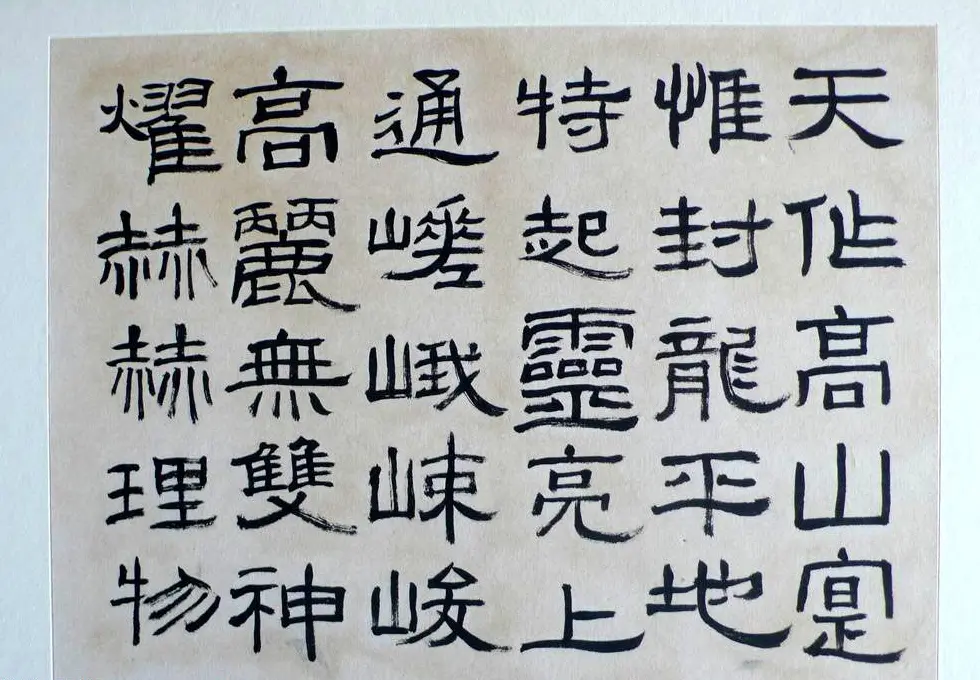 天作高山寔
惟封龍平地
特起靈亮上
通嵯峨峻
高麗無雙神
燿赫赫理物